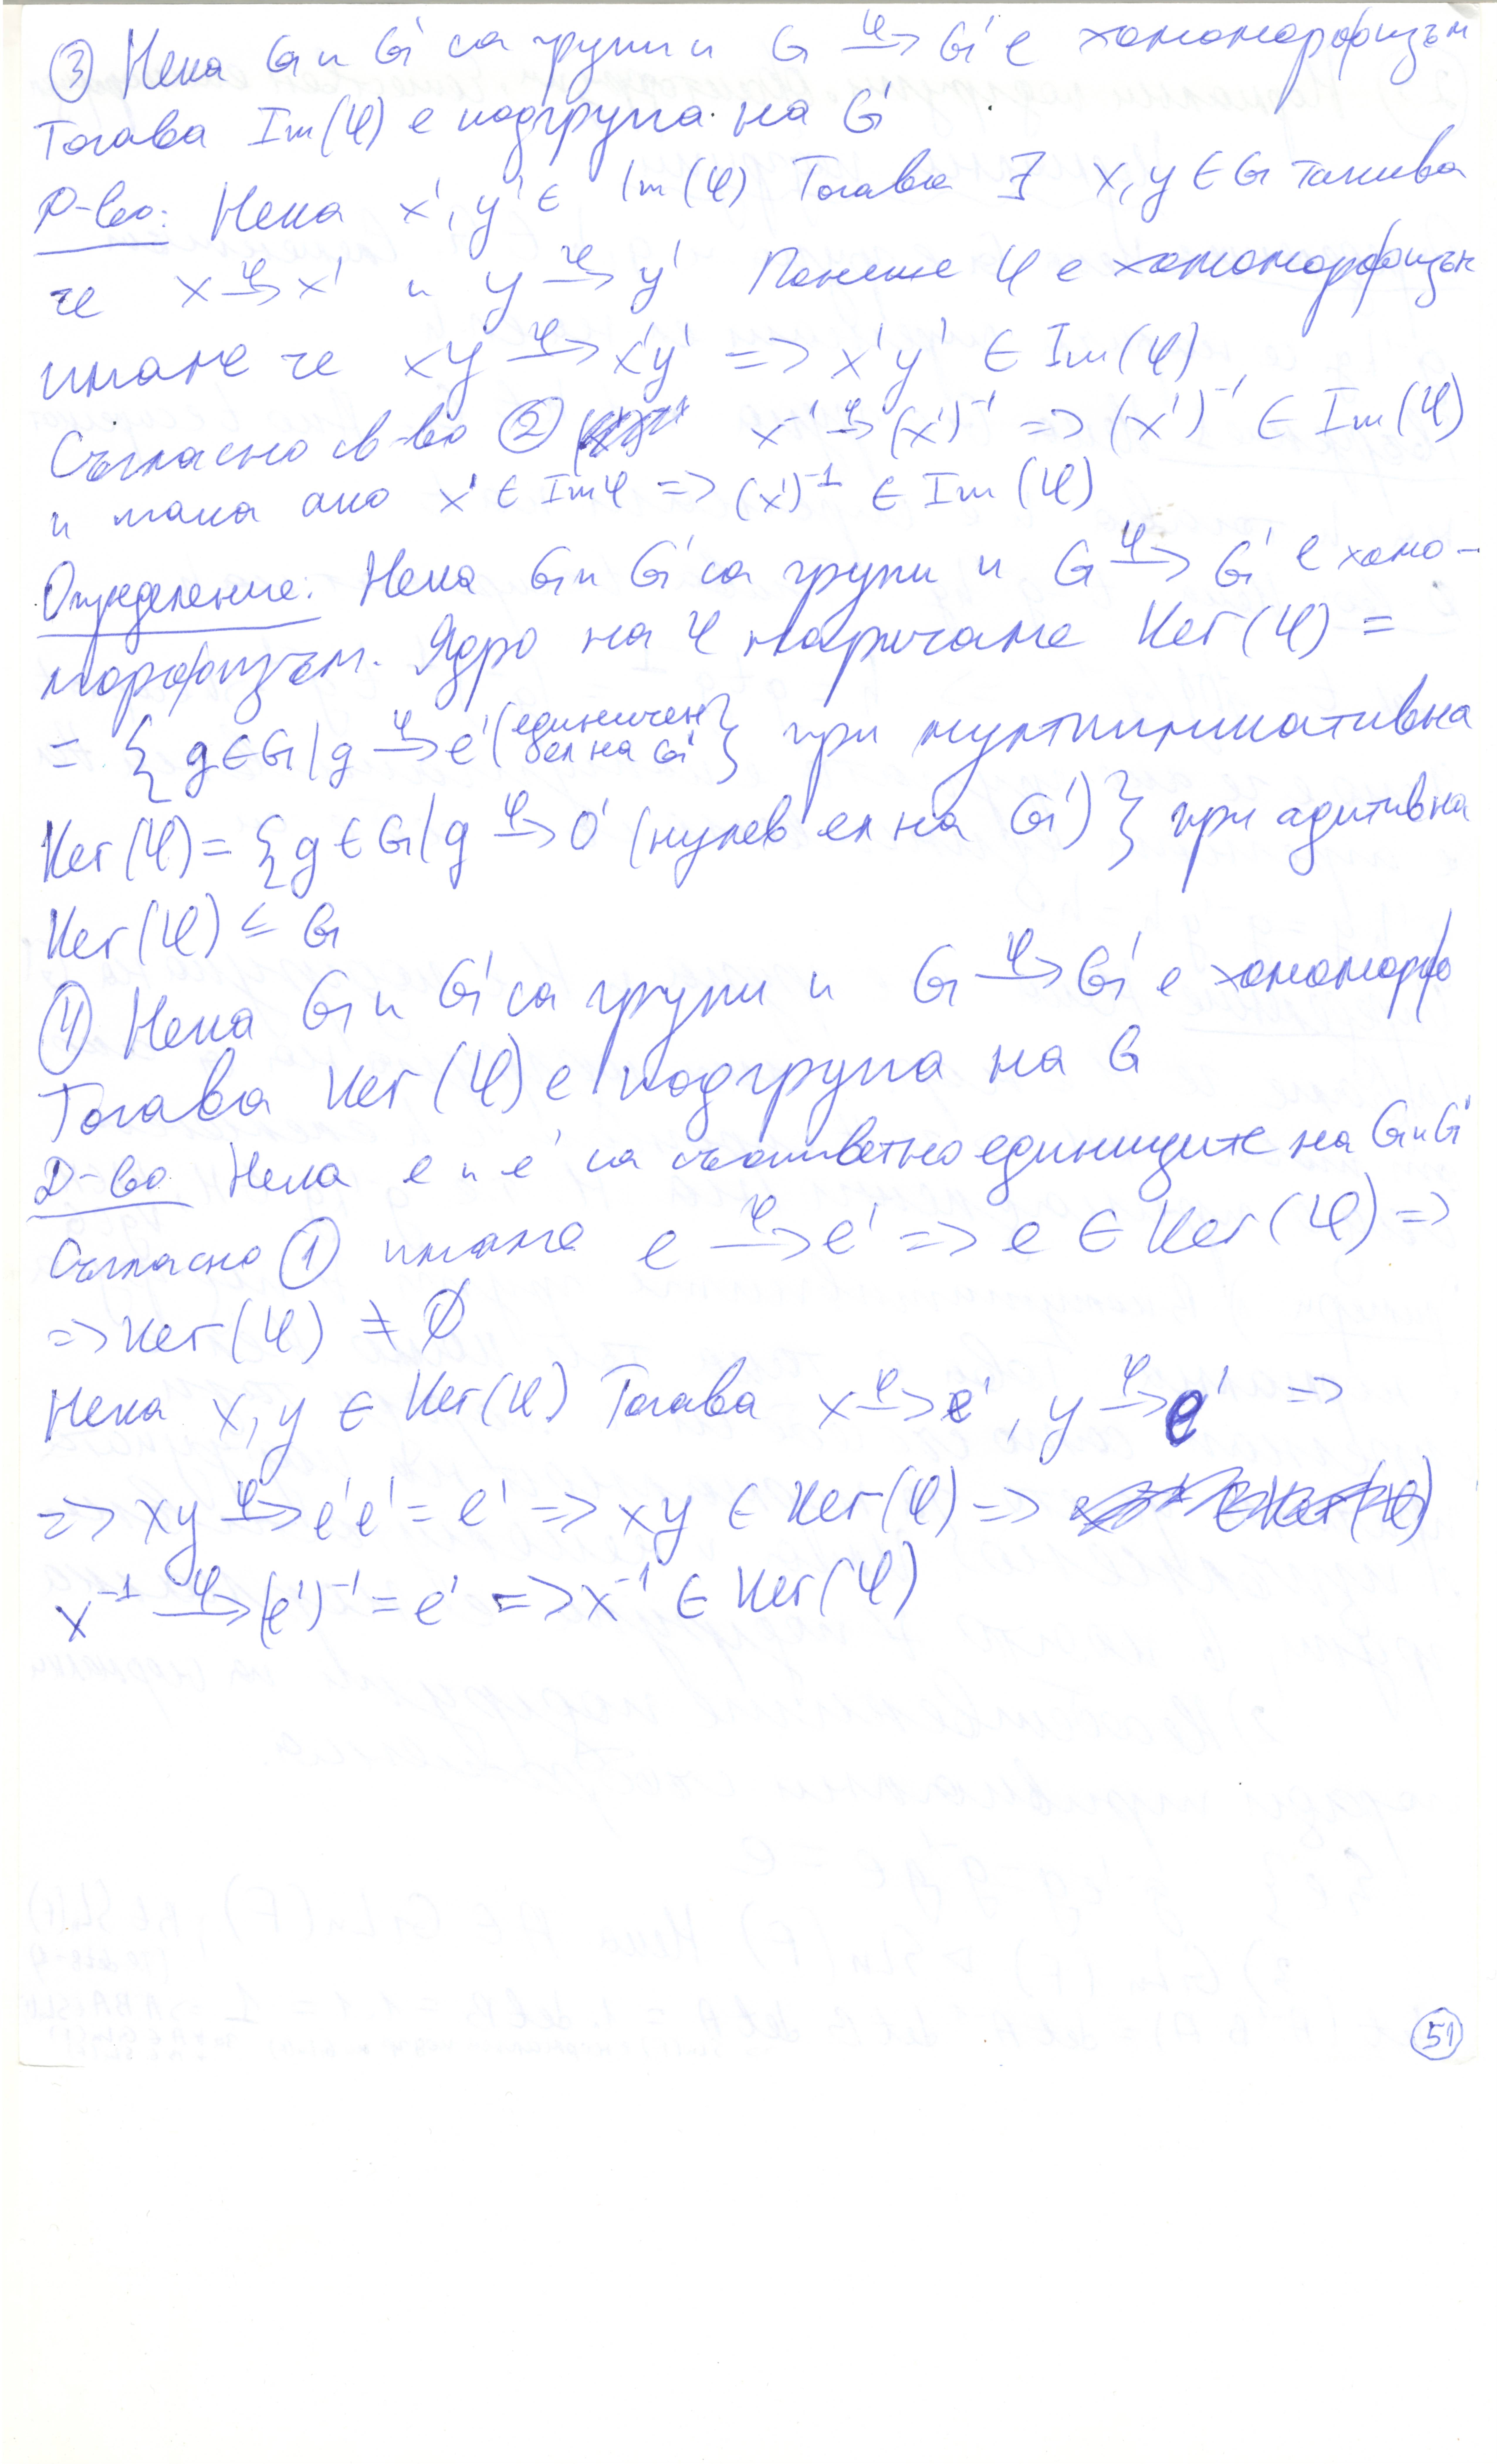 ③ Нека G и G' са групи и G —φ→ G' е хомоморфизъм
Тогава Im(φ) е подгрупа на G'
Д-во: Нека x', y' ∈ Im(φ) Тогава ∃ x, y ∈ G такива
че x —φ→ x' и y —φ→ y' Понеже φ е хомоморфизъм
имаме че xy —φ→ x'y' => x'y' ∈ Im(φ)
Съгласно св-во ② x⁻¹ —φ→ (x')⁻¹ => (x')⁻¹ ∈ Im(φ)
и така ако x' ∈ Imφ => (x')⁻¹ ∈ Im(φ)
Определение: Нека G и G' са групи и G —φ→ G' е хомо-
морфизъм. Ядро на φ наричаме Ker(φ) =
= { g ∈ G | g —φ→ e' (единичен ел на G' } при мултипликативна
Ker(φ) = { g ∈ G | g —φ→ 0' (нулев ел на G') } при адитивна
Ker(φ) ≤ G
④ Нека G и G' са групи и G —φ→ G' е хоморф
Тогава Ker(φ) е подгрупа на G
Д-во Нека e и e' са съответно единиците на G и G'
Съгласно ① имаме e —φ→ e' => e ∈ Ker(φ) =>
=> Ker(φ) ≠ ∅
Нека x, y ∈ Ker(φ) Тогава x —φ→ e', y —φ→ e' =>
=> xy —φ→ e'e' = e' => xy ∈ Ker(φ) =>
x⁻¹ —φ→ (e')⁻¹ = e' => x⁻¹ ∈ Ker(φ)
51